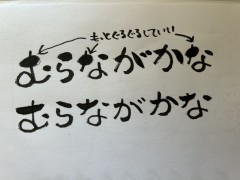 もっとぐるぐるしていい!
むらながかな
むらながかな